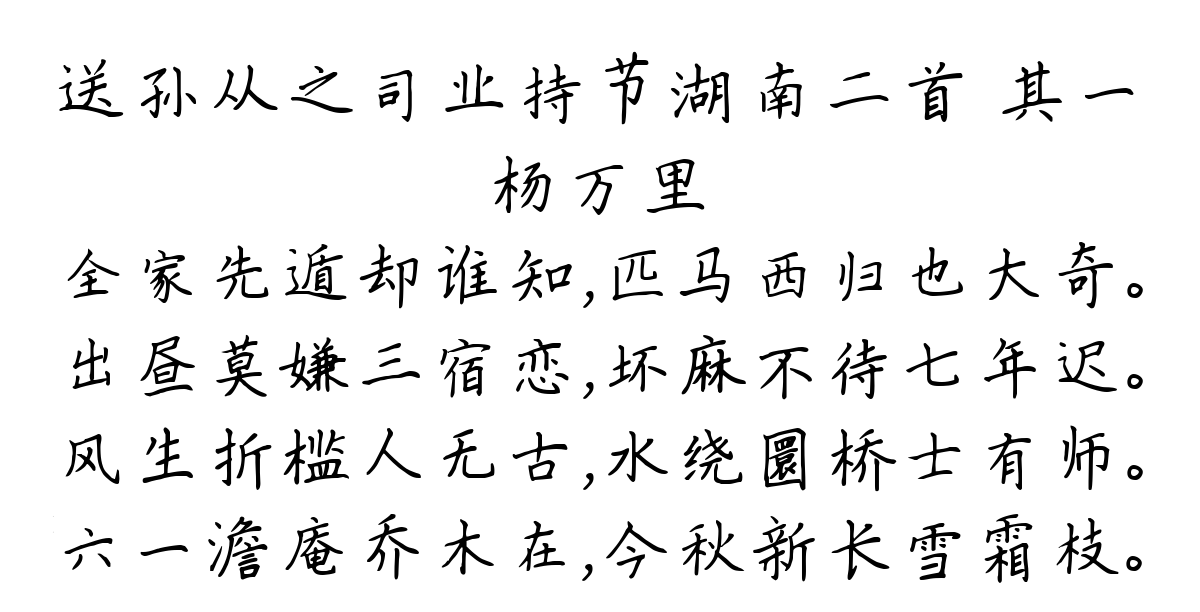 送孙从之司业持节湖南二首 其一
杨万里
全家先遁却谁知,匹马西归也大奇。
出昼莫嫌三宿恋,坏麻不待七年迟。
风生折槛人无古,水绕圜桥士有师。
六一澹庵乔木在,今秋新长雪霜枝。